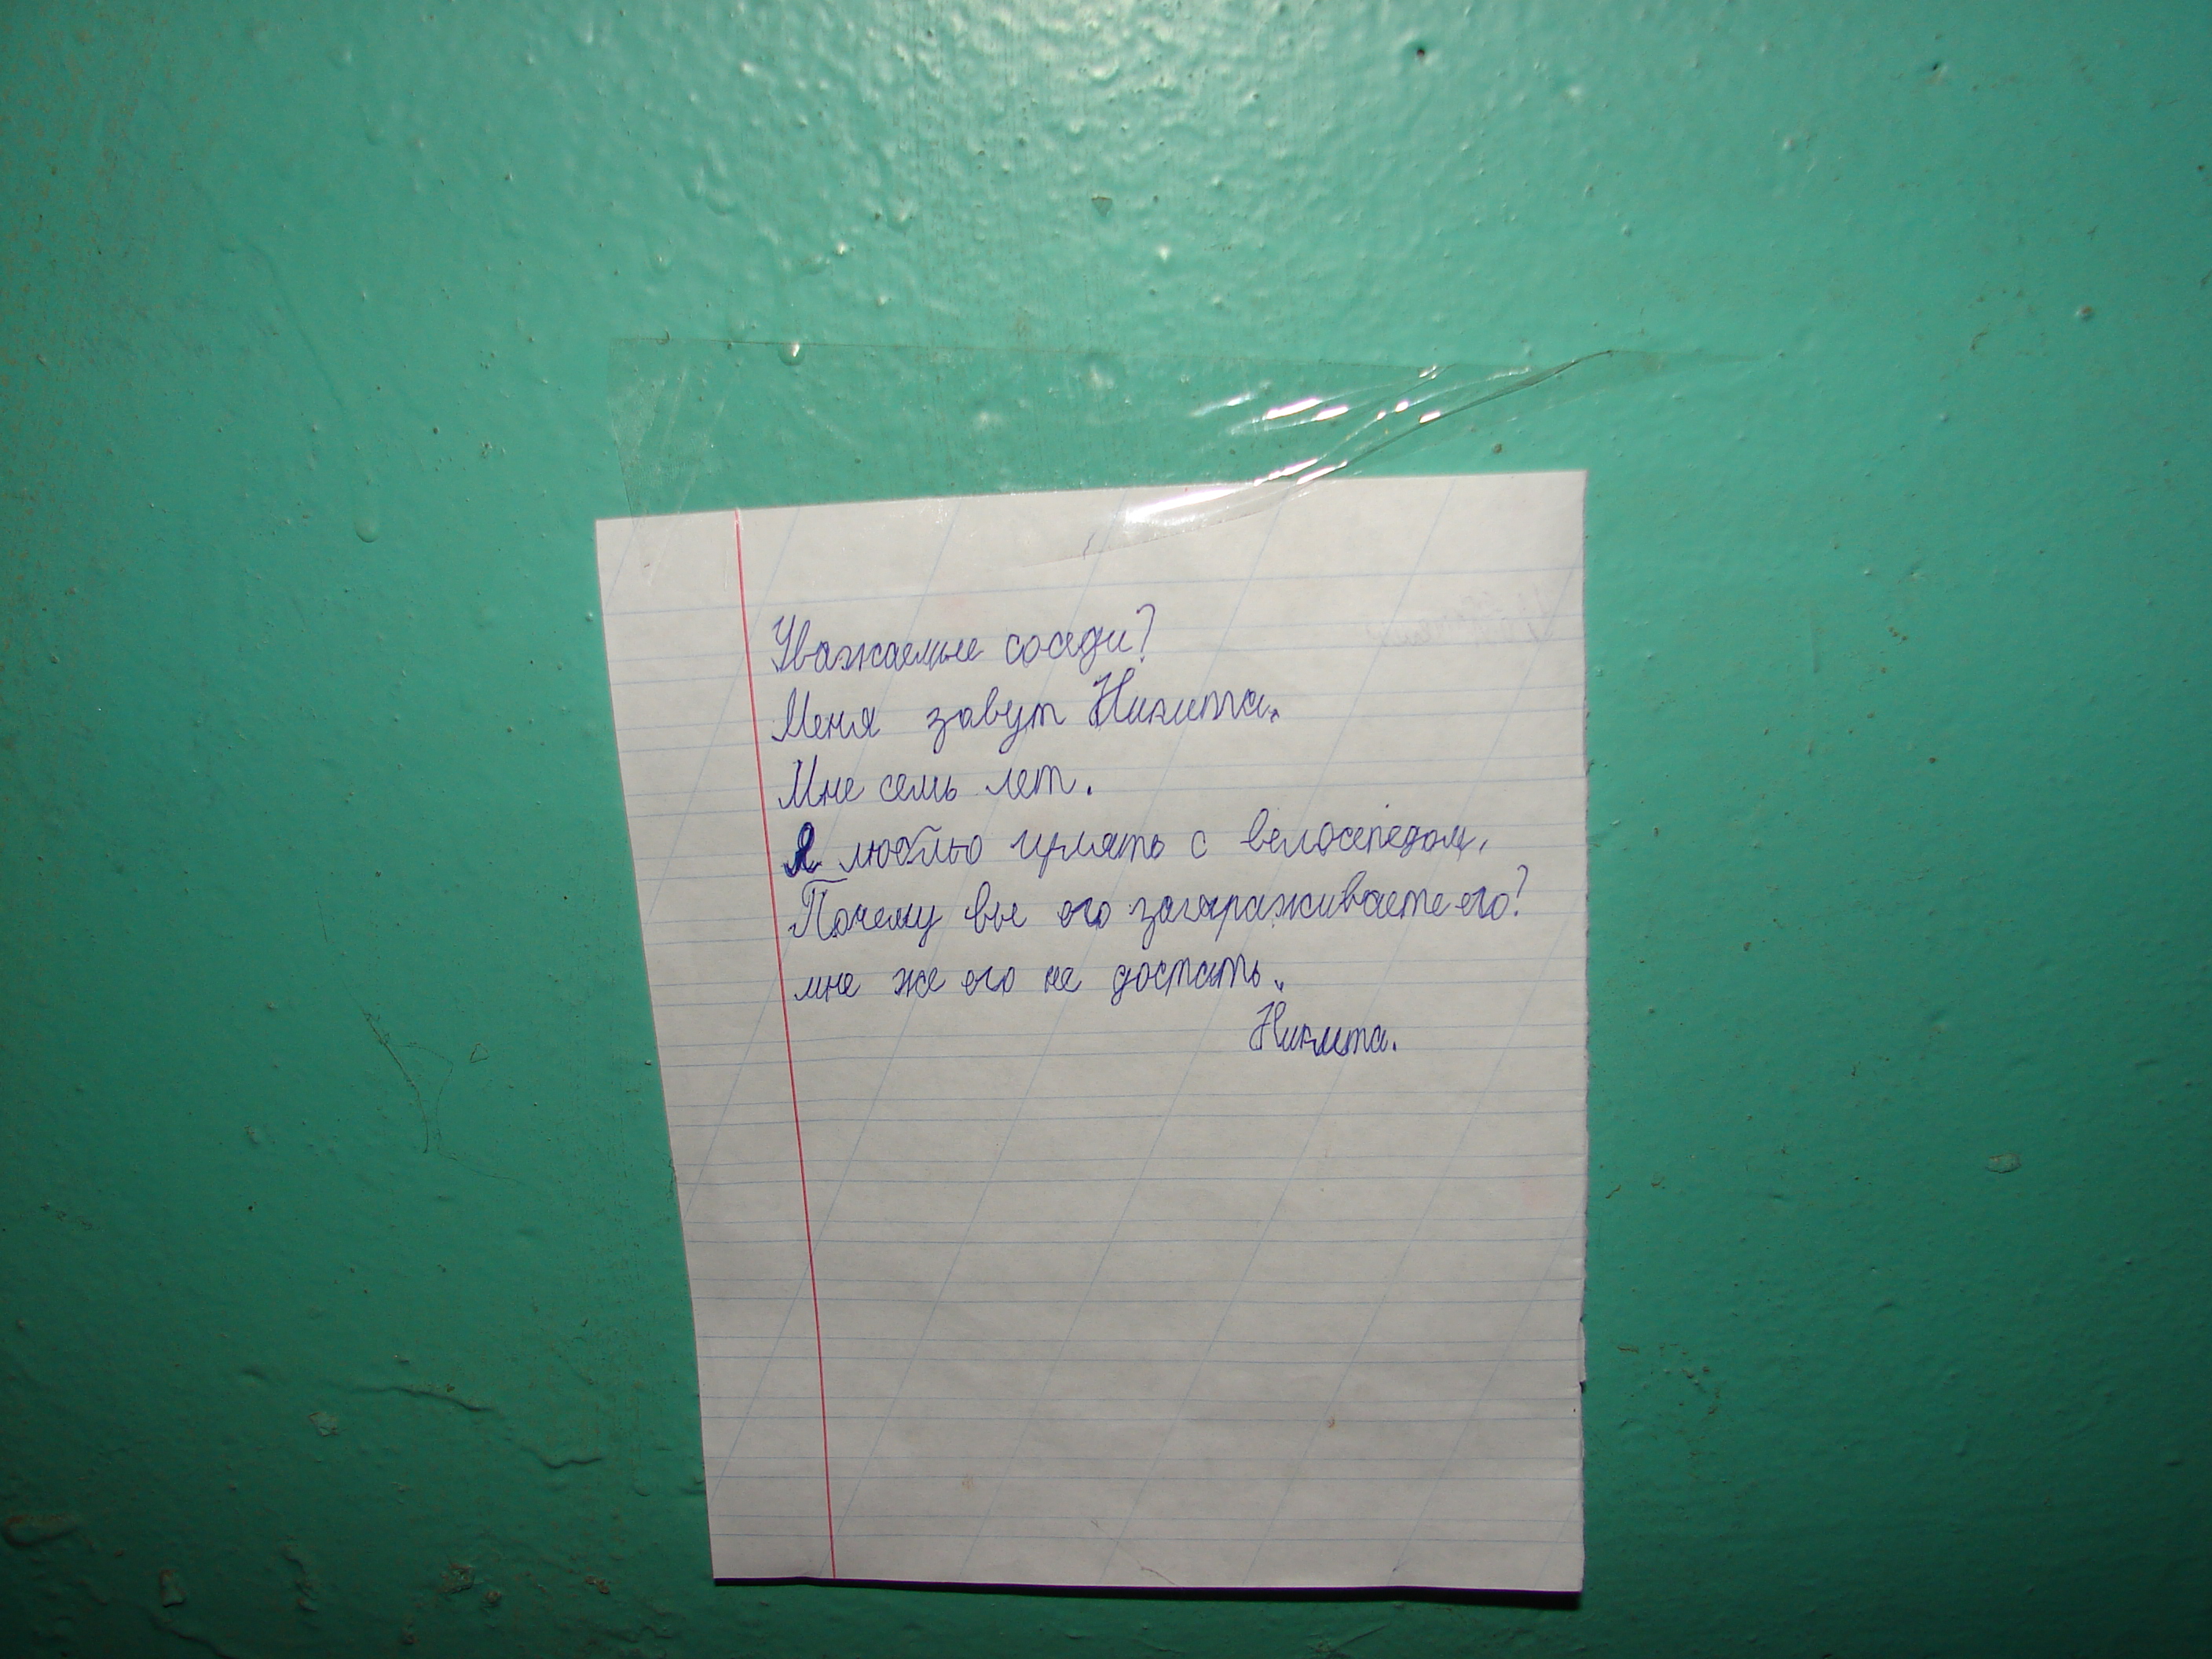 Уважаемые соседи?
Меня завут Никита.
Мне семь лет.
Я люблю гулять с велосепедом,
Почему вы его загараживаете его?
мне же его не достать.
Никита.